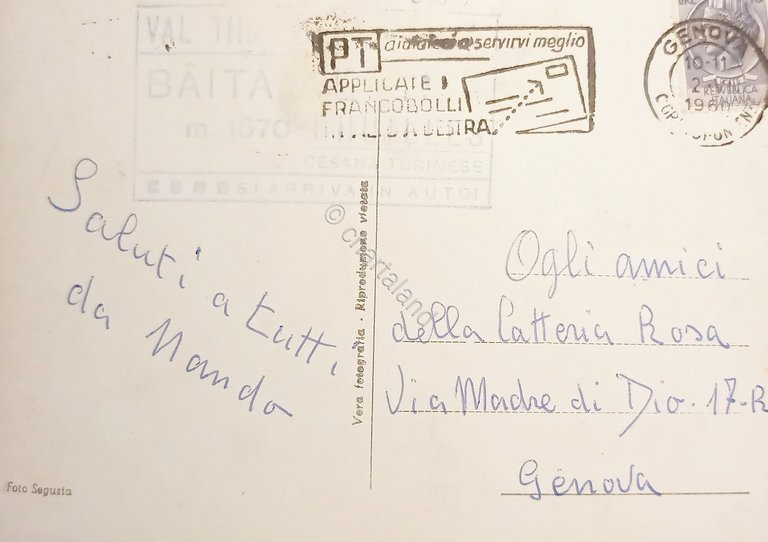 VAL THU
BÂITA
m. 1670
CESANA TORINESE
SI ARRIVA IN AUTO!
PT aiutateci a servirvi meglio
APPLICATE I
FRANCOBOLLI
IN ALTO A DESTRA
GENOVA
10-11
196
CORRISPONDENZE
REPVBBLICA
ITALIANA
Saluti a tutti
da Nando
Vera fotografia - Riproduzione vietata
© chartaland
Ogli amici
della Latteria Rosa
Via Madre di Dio. 17-R
Genova
Foto Segusta